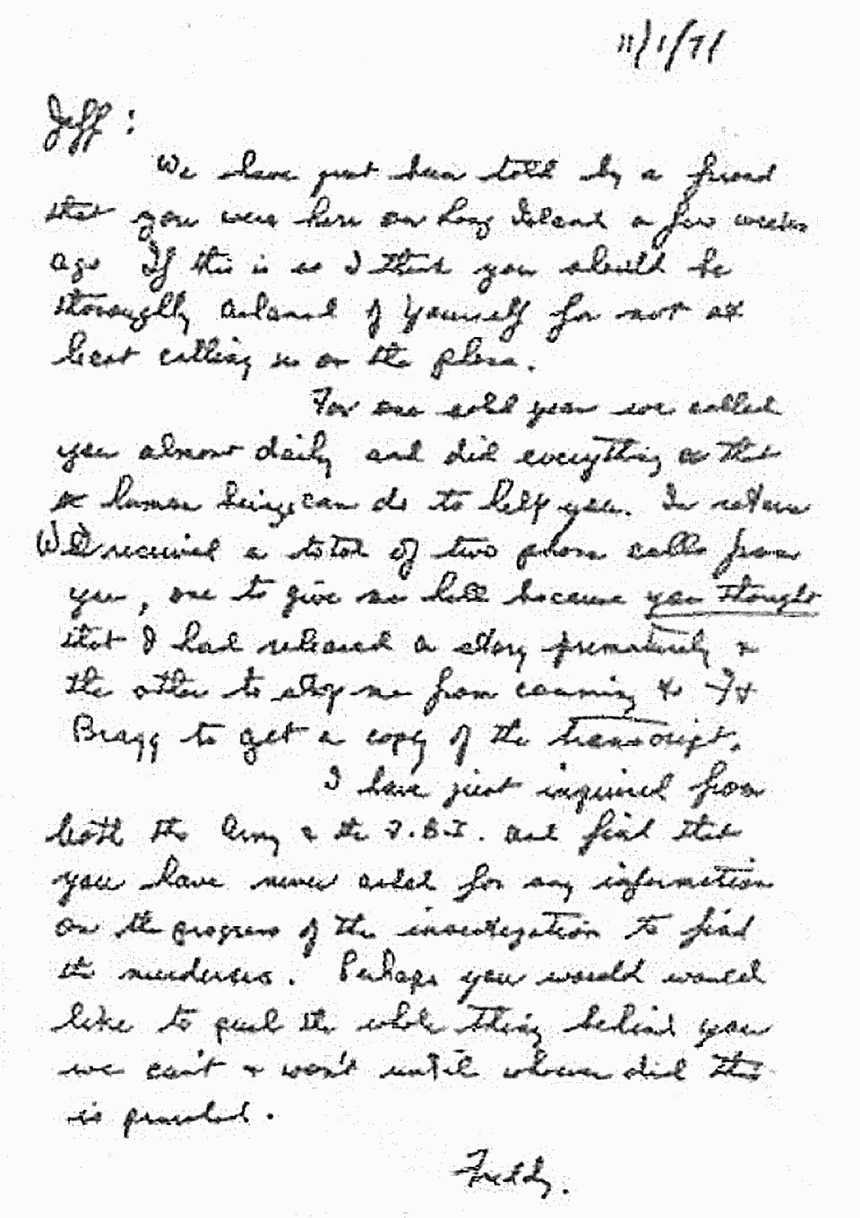 11/1/71
Jeff:
We have just been told by a friend
that you were here on Long Island a few weeks
ago If this is so I think you should be
thoroughly ashamed of yourself for not at
least calling us on the phone.
For one solid year we called
you almost daily and did everything that
human beings can do to help you. In return
We received a total of two phone calls from
you, one to give me hell because you thought
that I had released a story prematurely &
the other to stop me from comming to Ft
Bragg to get a copy of the transcript.
I have just inquired from
both the Army & the F.B.I. and find that
you have never asked for any information
on the progress of the investigation to find
the murderers. Perhaps you would
like to push the whole thing behind you
we can't & won't until whoever did this
is punished.
Freddy.